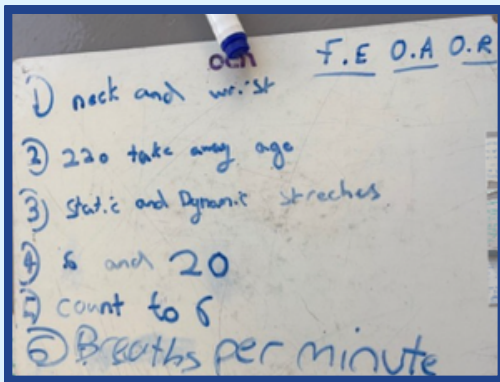 F.E O.A O.R
1) neck and wrist
2) 220 take away age
3) Static and Dynamic streches
4) and 20
5) count to 6
6) Breaths per minute